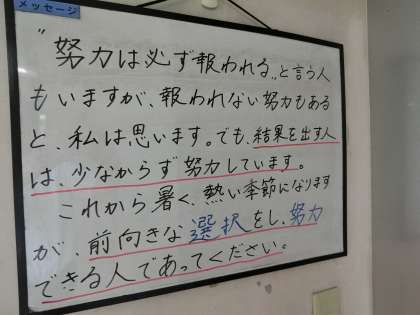 メッセージ
"努力は必ず報われる„と言う人
もいますが、報われない努力もある
と、私は思います。でも、結果を出す人
は、少なからず努力しています。
これから暑く、熱い季節になります
が、前向きな選択をし、努力
できる人であってください。